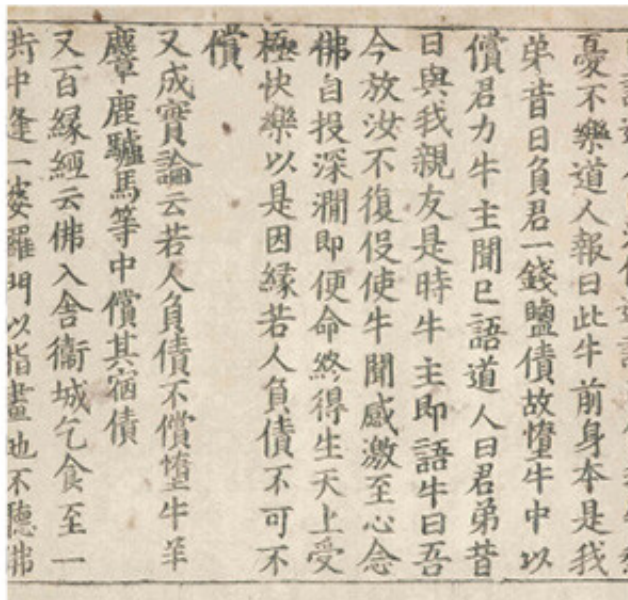 憂不樂道人報曰此牛前身本是我
弟昔日負君一錢鹽債故墮牛中以
償君力牛主聞已語道人曰君弟昔
日與我親友是時牛主即語牛曰吾
今放汝不復役使牛聞感激至心念
佛自投深澗即便命終得生天上受
極快樂以是因緣若人負債不可不
償
又成實論云若人負債不償墮牛羊
麞鹿驢馬等中償其宿債
又百緣經云佛入舍衛城乞食至一
中逢一婆羅門以指畫地不聽佛